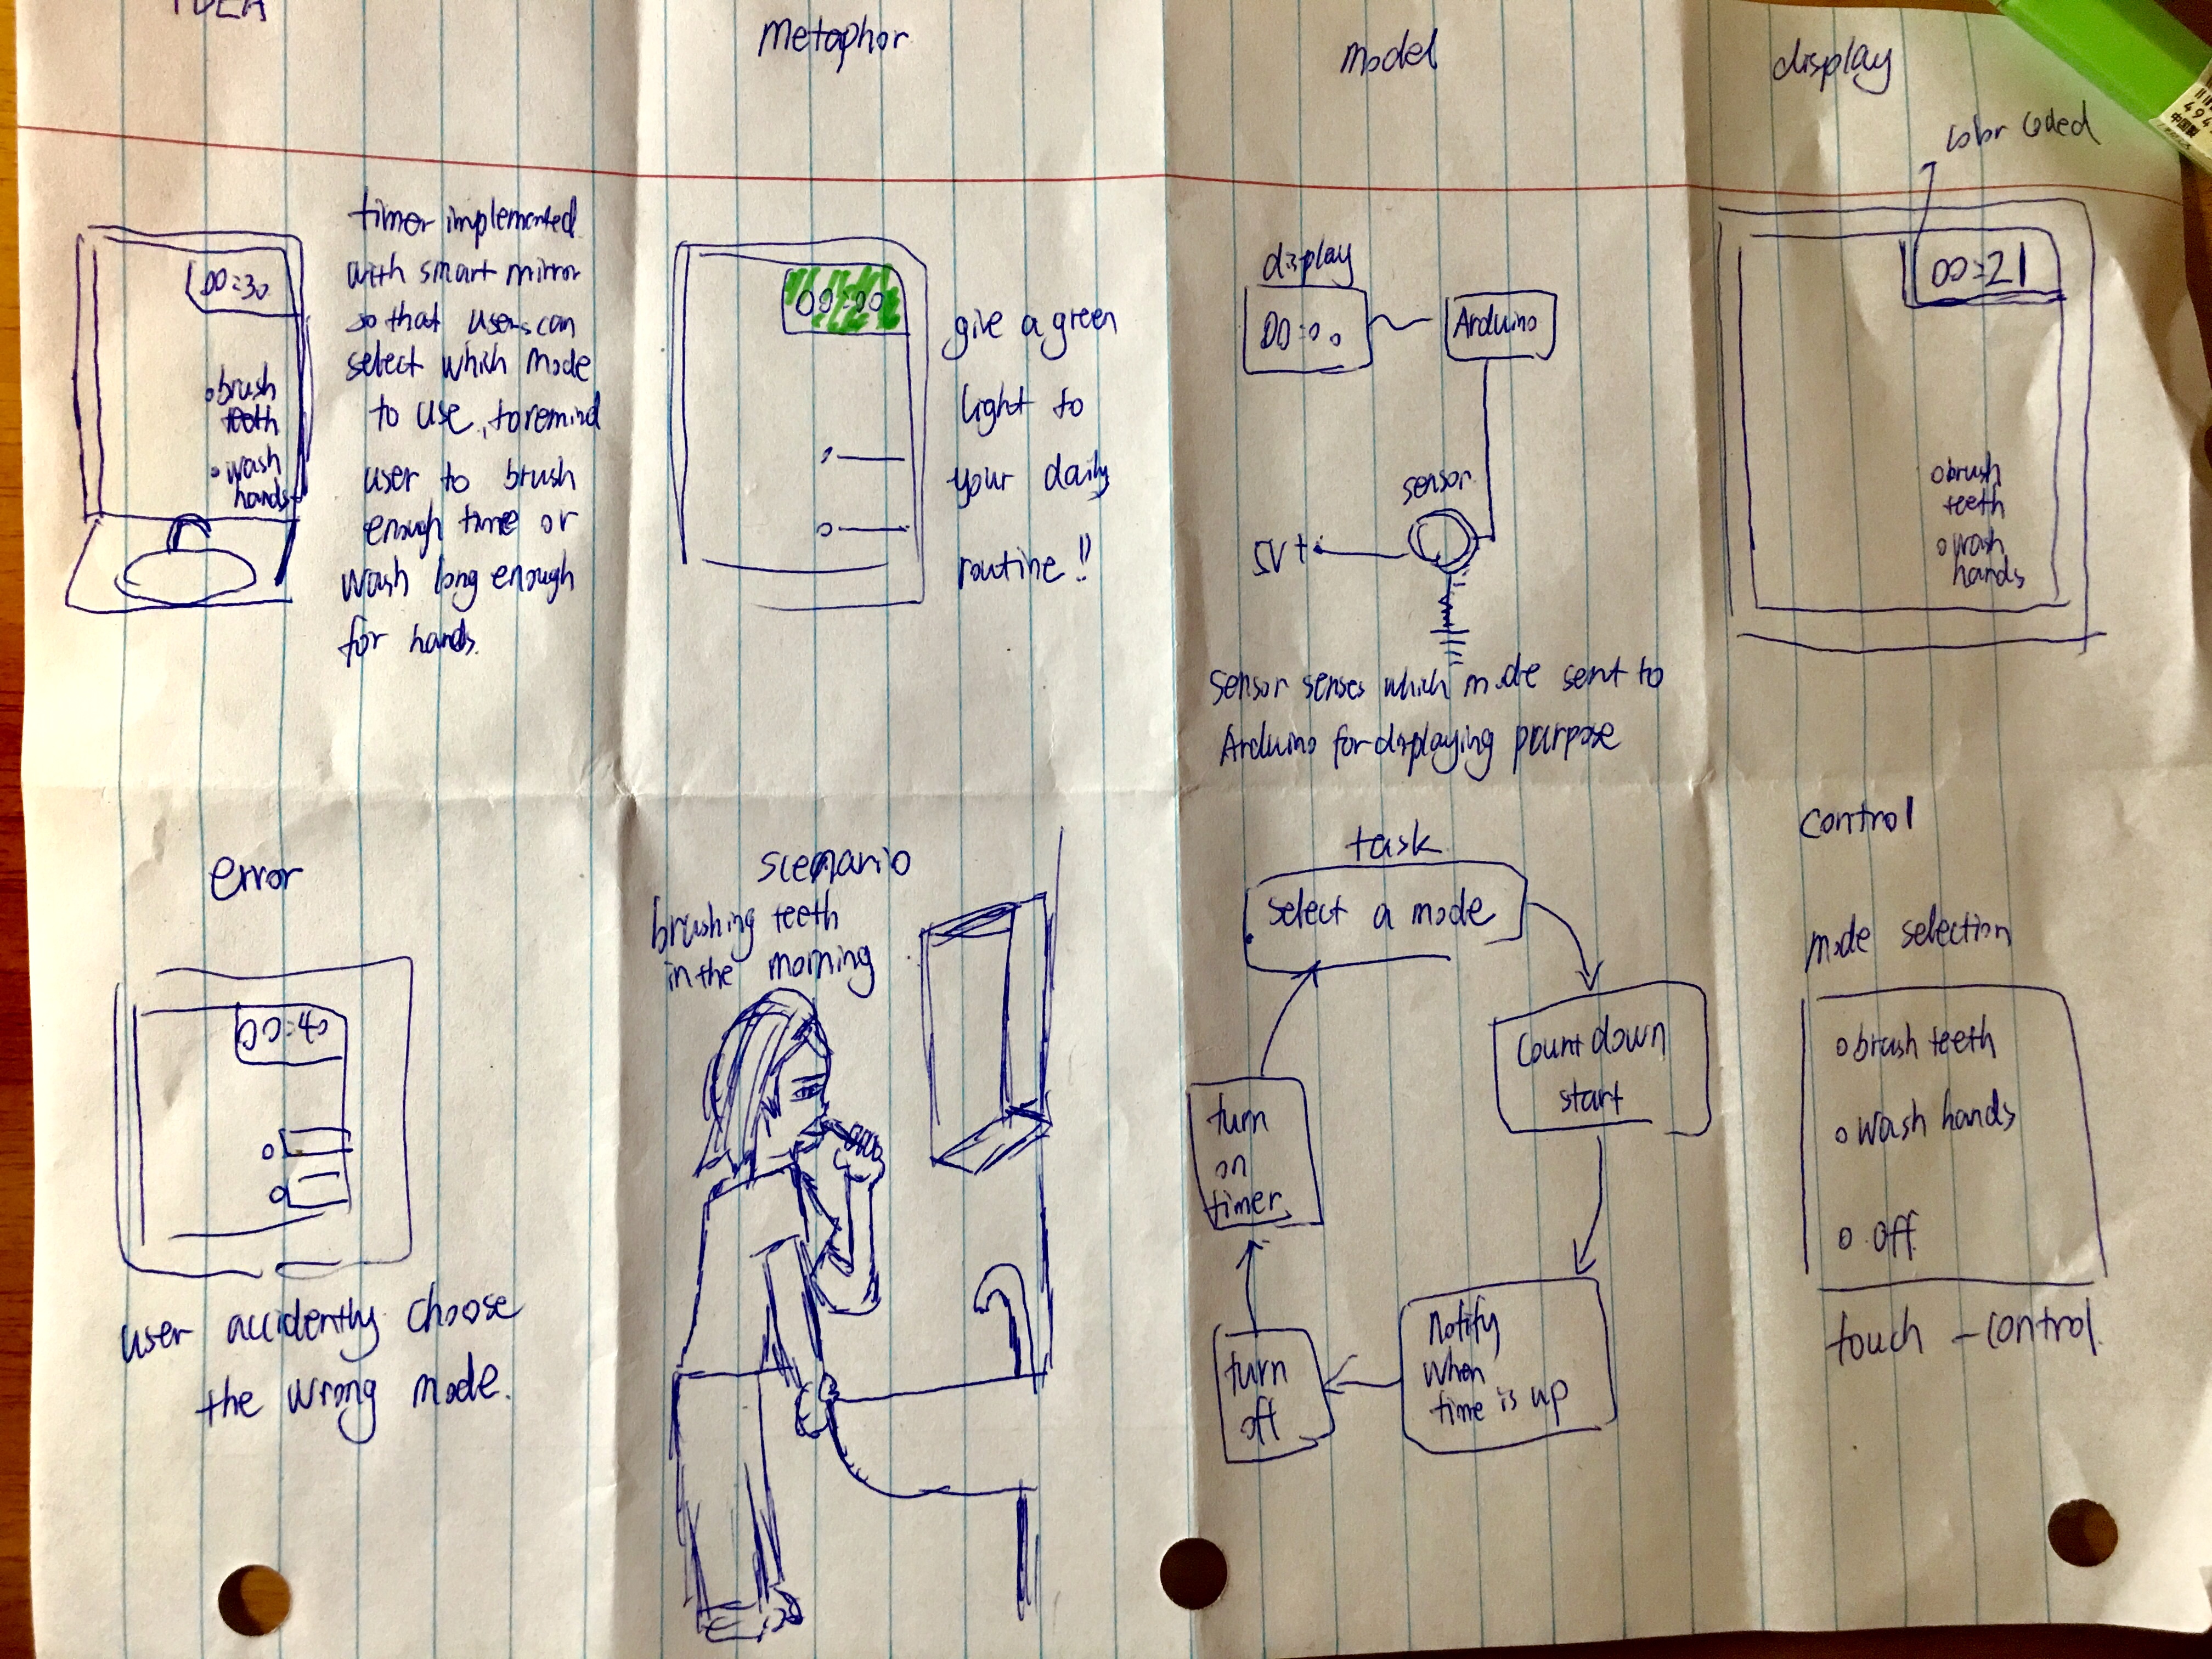 IDEA
00:30
brush
teeth
wash
hands
timer implemented
with smart mirror
so that users can
select which mode
to use, to remind
user to brush
enough time or
wash long enough
for hands.
Metaphor
00:00
give a green
light to
your daily
routine!!
Model
display
00:00
Arduino
sensor
5V+
sensor senses which mode sent to
Arduino for displaying purpose
display
color coded
00:21
brush
teeth
wash
hands
error
00:40
user accidently choose
the wrong mode.
scenario
brushing teeth
in the morning
task
select a mode
Count down
start
Notify
when
time is up
turn
off
turn
on
timer
control
mode selection
brush teeth
wash hands
off
touch - control.
494
中国製